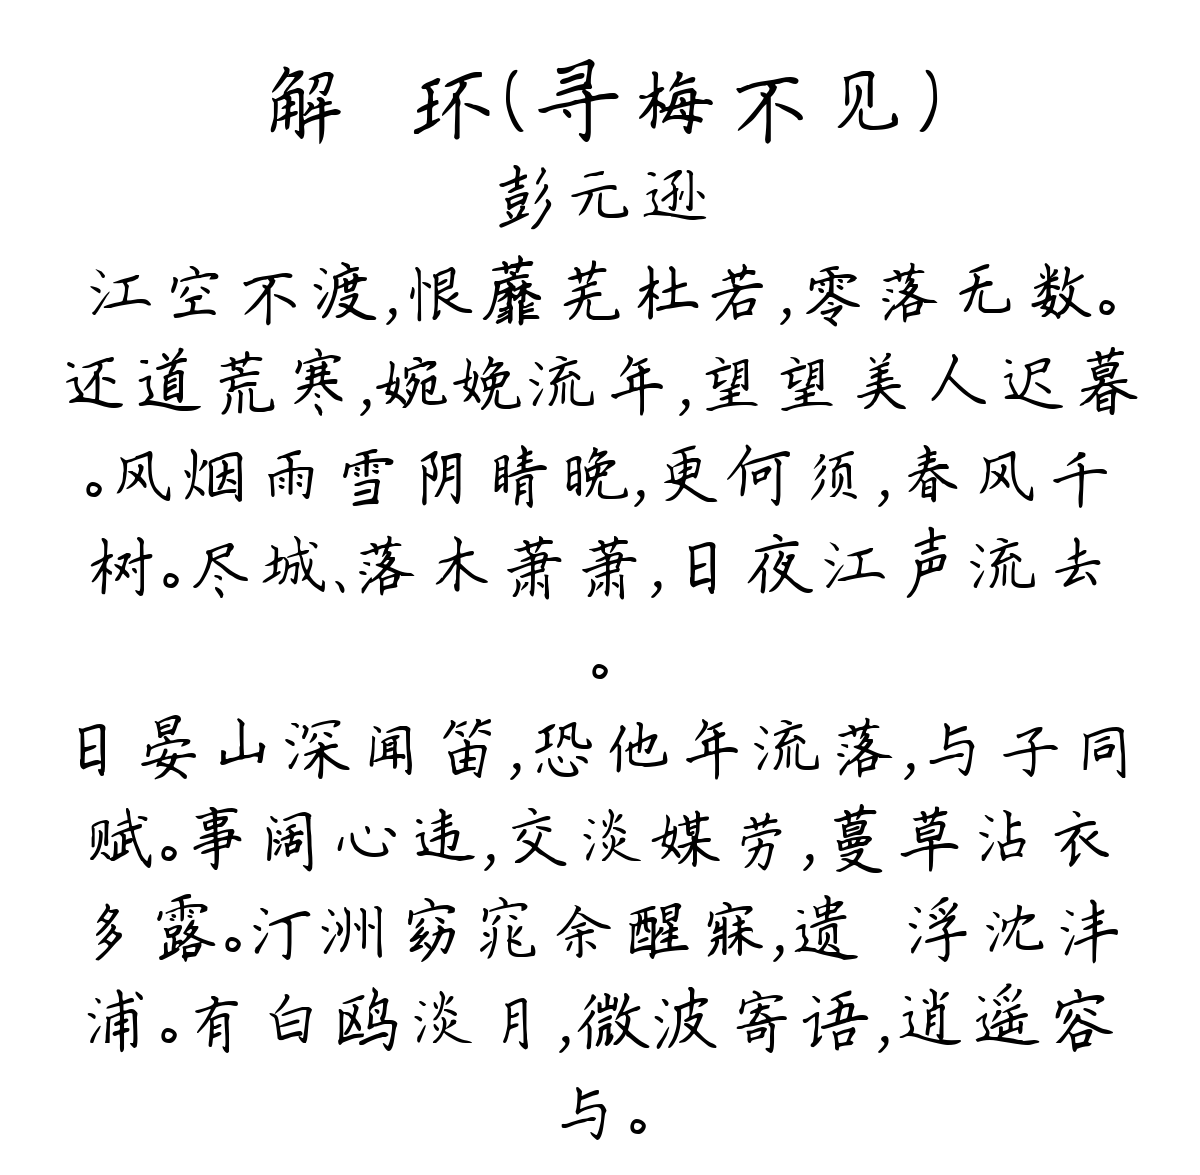 解 环(寻梅不见)
彭元逊
江空不渡,恨蘼芜杜若,零落无数。
还道荒寒,婉娩流年,望望美人迟暮
。风烟雨雪阴晴晚,更何须,春风千
树。尽城、落木萧萧,日夜江声流去
。
日晏山深闻笛,恐他年流落,与子同
赋。事阔心违,交淡媒劳,蔓草沾衣
多露。汀洲窈窕余醒寐,遗 浮沈沣
浦。有白鸥淡月,微波寄语,逍遥容
与。